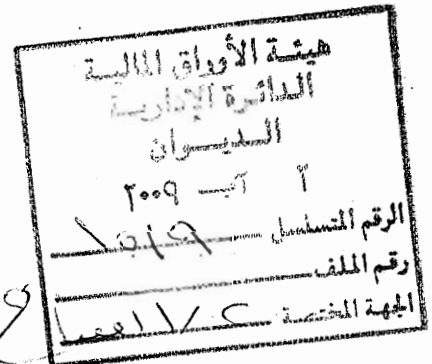 هيئة الأوراق المالية
الدائرة الإدارية
الديوان
آب ٢٠٠٩
الرقم المتسلسل
رقم الملف
الجهة المختصة